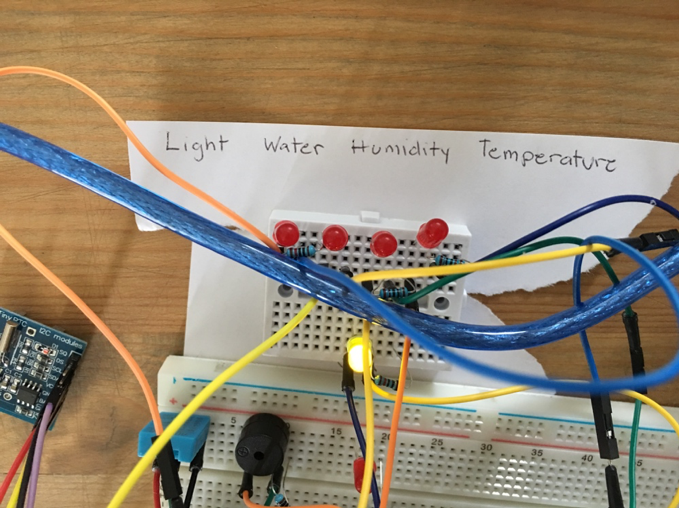 Light Water Humidity Temperature
Tiny RTC I2C modules
5
15
20
25
30
35
40
45